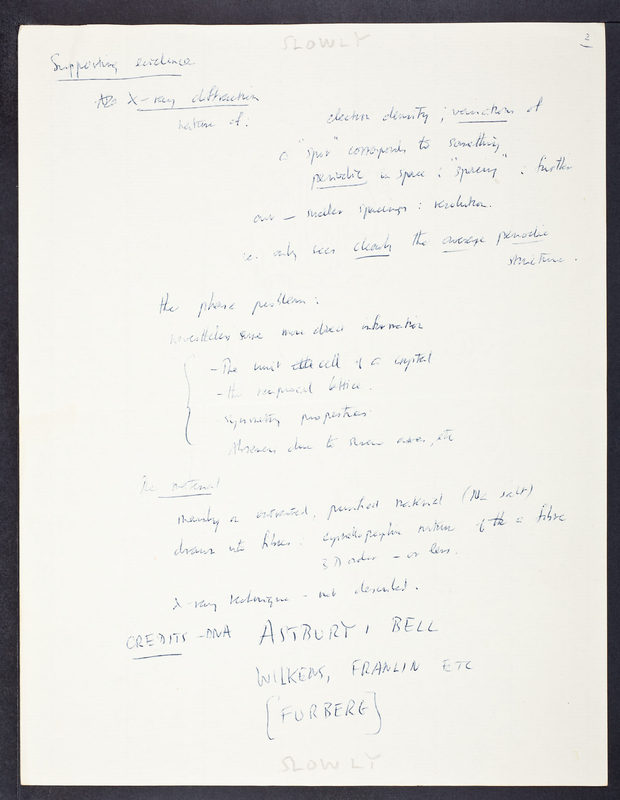 SLOWLY
2
Supporting evidence
X-ray diffraction
nature of. electron density ; variation of
a "spot" corresponds to something
periodic in space : "spacing" : further
out — smaller spacings : resolution.
i.e. only sees clearly the average periodic
structure.
the phase problem :
nevertheless some more direct information
- The unit cell of a crystal
- the reciprocal lattice.
symmetry properties
Absences due to screw axes, etc
The material
mainly an extracted, purified material (Na salt)
drawn into fibres. crystallographic nature of the a fibre
3D order — or less.
X-ray technique — not described.
CREDITS - DNA ASTBURY & BELL
WILKENS, FRANLIN ETC
[FURBERG]
SLOWLY